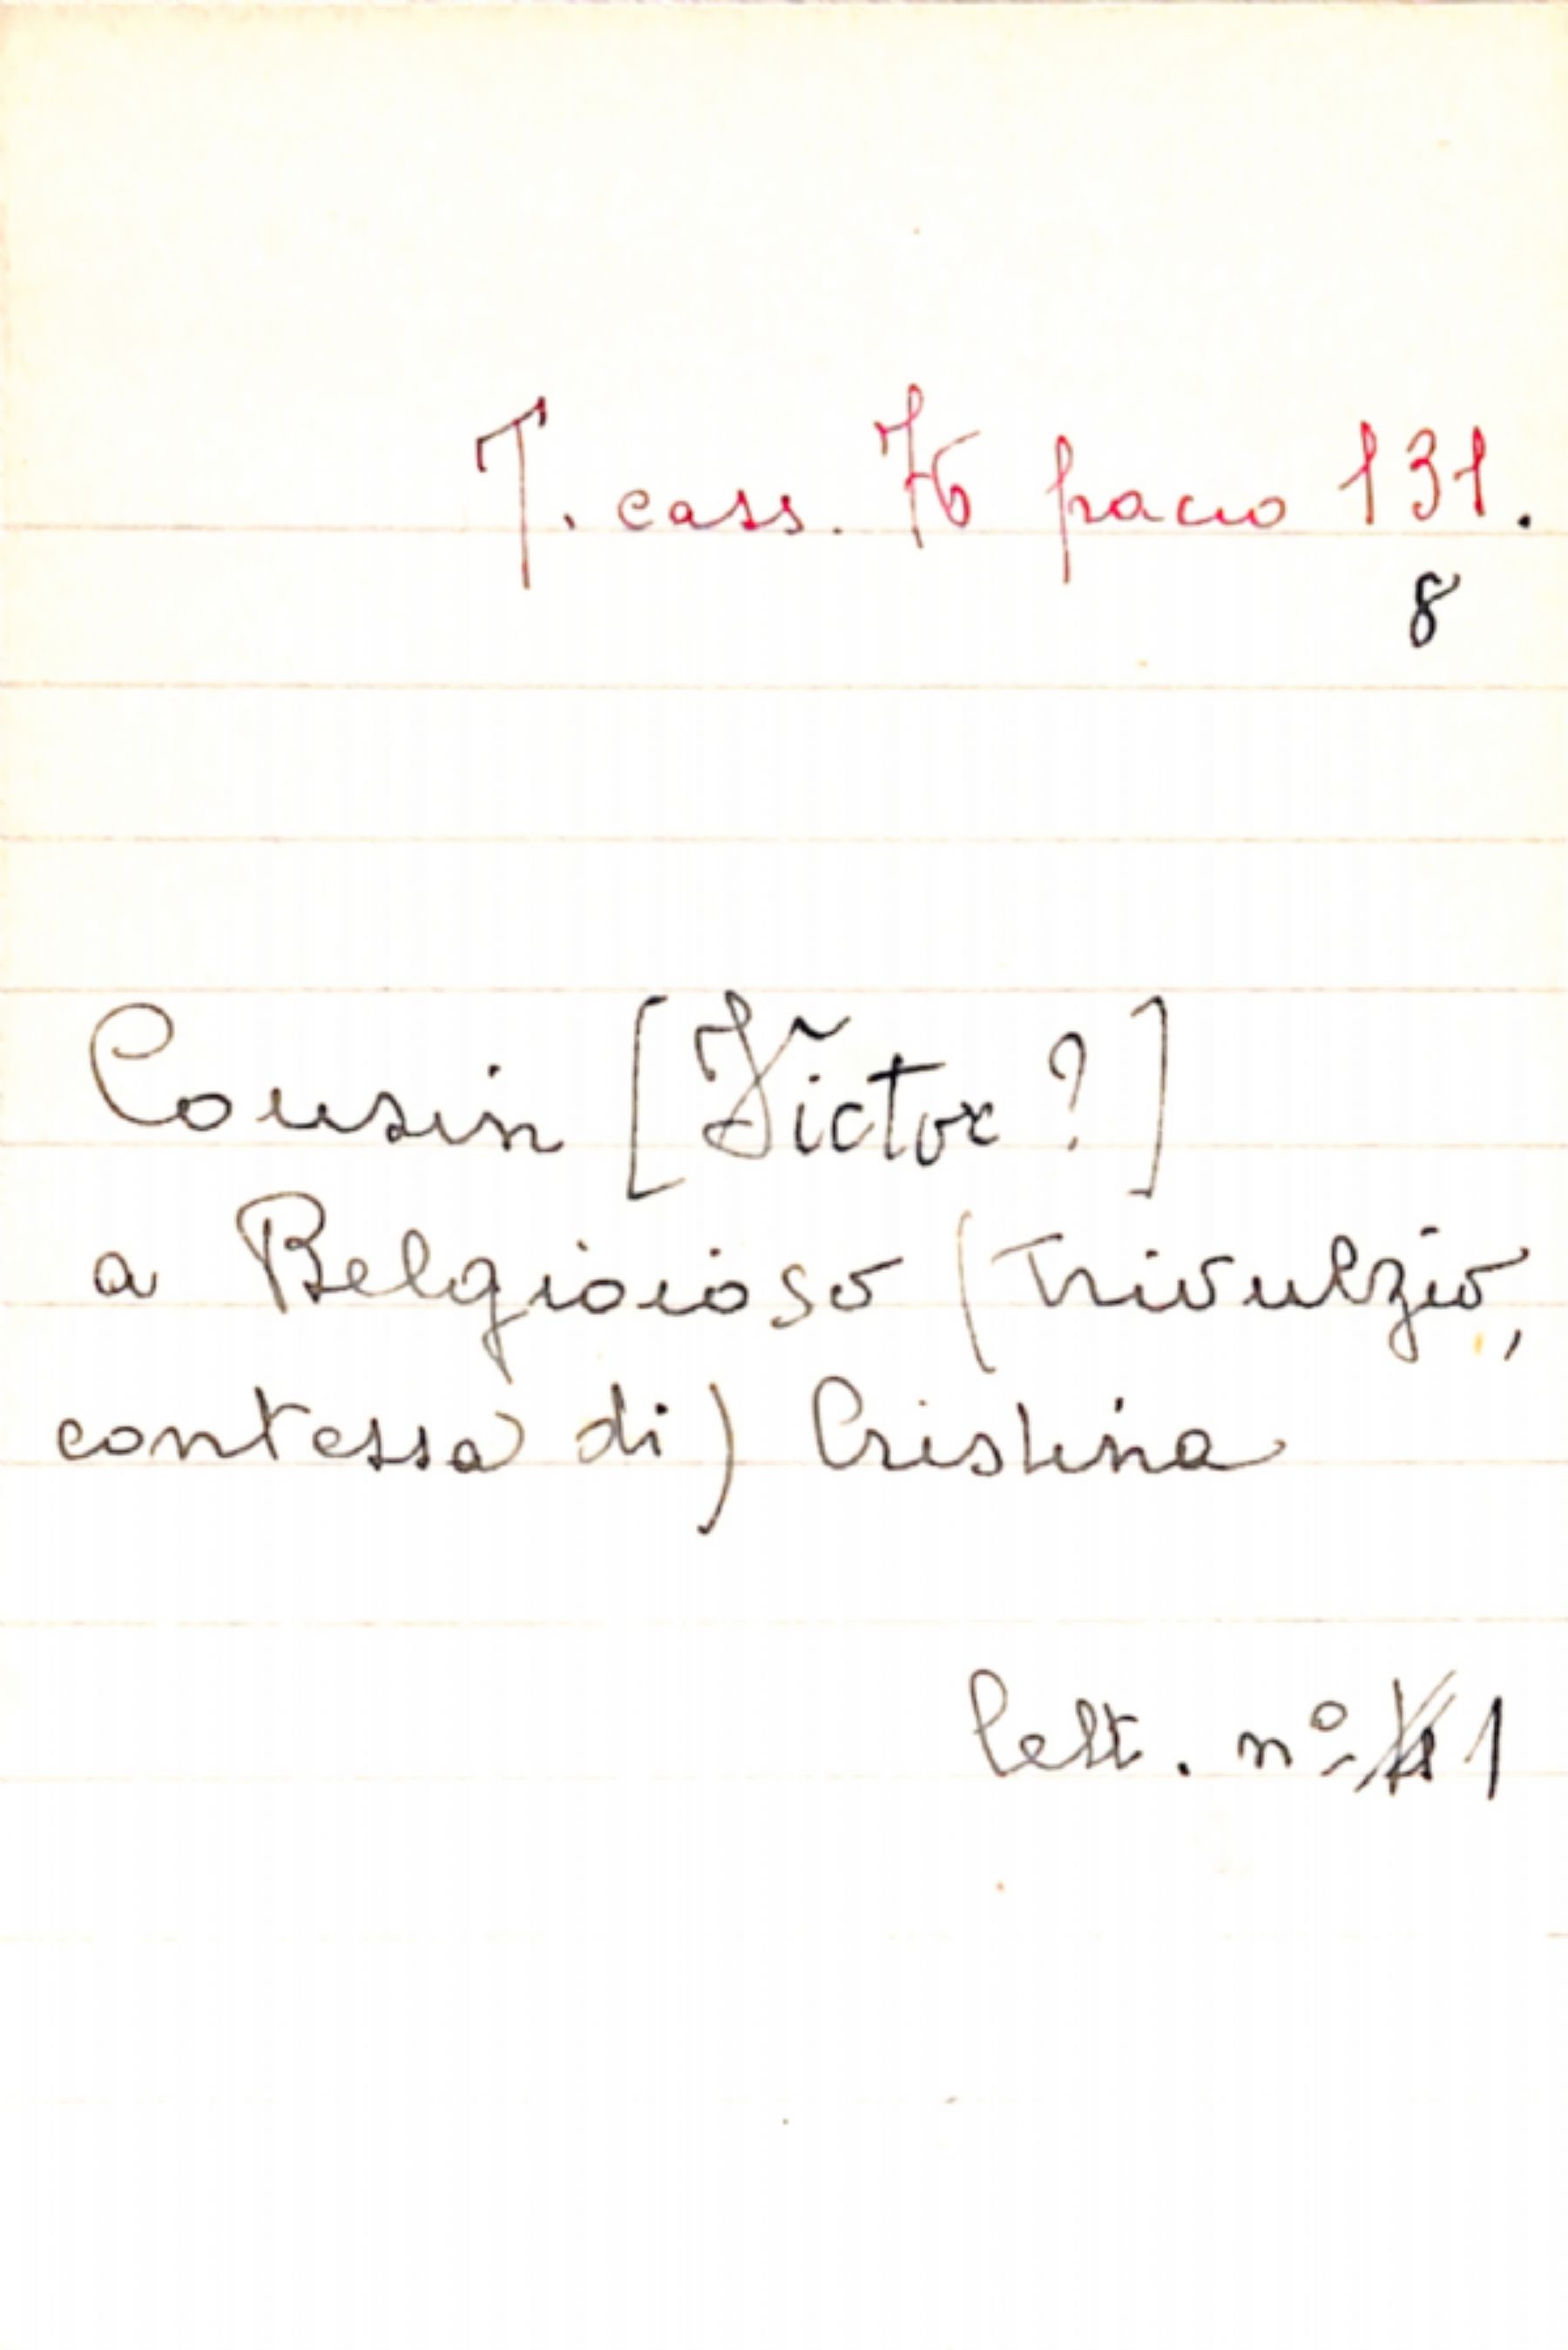 T. cass. 76 pacco 131.
8
Cousin [Victor?]
a Belgioioso (Trivulzio,
contessa di) Cristina
lett. nº 1